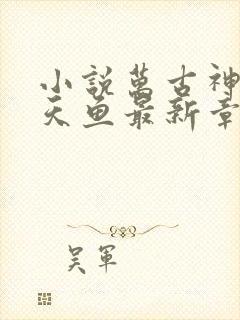 小說萬古神
天魚最新章
吴軍